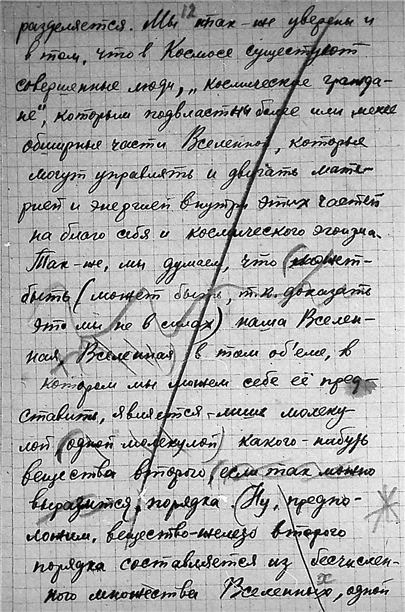 12
разделяется. Мы так-же уверены и
в том, что в Космосе существуют
совершенные люди, „космические гражда-
не", которым подвластны более или менее
обширные части Вселенной, которые
могут управлять и двигать мате-
рией и энергией внутри этих частей
на благо себя и космического эгоизма.
Так-же, мы думаем, что (может-
быть (может быть, т.к. доказать
это мы не в силах) наша Вселен-
ная, Вселенная в том об'еме, в
котором мы можем себе её пред-
ставить, является лишь молеку
лой (одной молекулой) какого-нибудь
вещества второго, если так можно
выразится, порядка. (Ну, предпо-
ложим, вещество-железо второго
порядка составляется из бесчислен-
ного множества Вселенных, одной